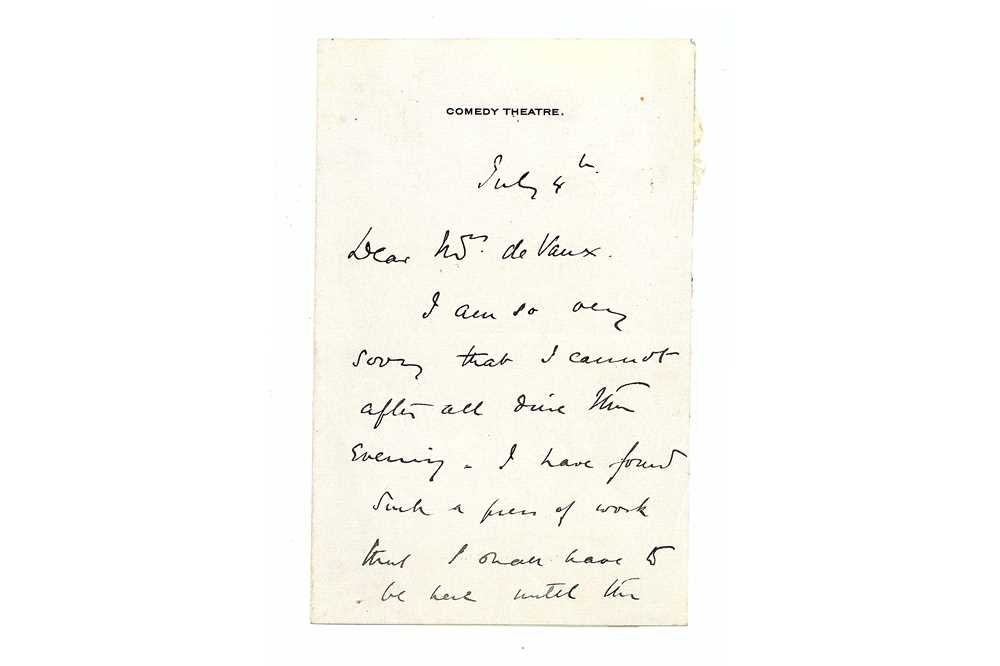 COMEDY THEATRE.
July 4th.
Dear Mrs. de Vaux.
I am so very
sorry that I cannot
after all dine this
Evening. I have found
such a press of work
that I shall have to
be here until the